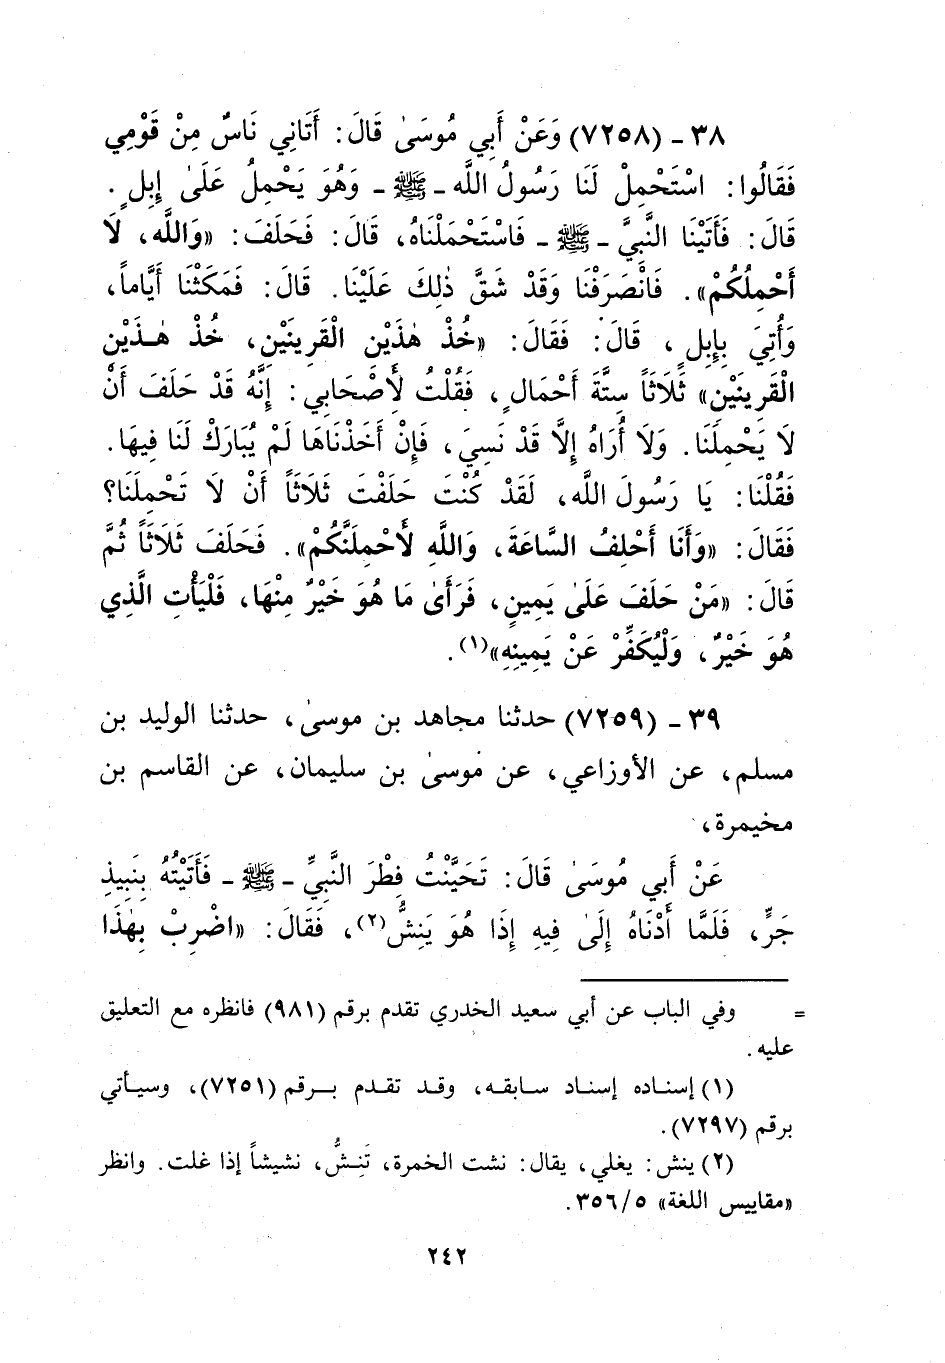 ٣٨ - (٧٢٥٨) وَعَنْ أَبِي مُوسَىٰ قَالَ: أَتَانِي نَاسٌ مِنْ قَوْمِي
فَقَالُوا: اسْتَحْمِلْ لَنَا رَسُولُ اللَّه - ﷺ - وَهُوَ يَحْمِلُ عَلَىٰ إِبِلٍ.
قَالَ: فَأَتَيْنَا النَّبِيَّ - ﷺ - فَاسْتَحْمَلْنَاهُ، قَالَ: فَحَلَفَ: «وَاللَّه، لَا
أَحْمِلُكُمْ». فَانْصَرَفْنَا وَقَدْ شَقَّ ذٰلِكَ عَلَيْنَا. قَالَ: فَمَكَثْنَا أَيَّاماً،
وَأُتِيَ بِإِبِلٍ، قَالَ: فَقَالَ: «خُذْ هٰذَيْنِ الْقَرِينَيْنِ، خُذْ هٰذَيْنِ
الْقَرِينَيْنِ» ثَلَاثَاً سِتَّةَ أَحْمَالٍ، فَقُلْتُ لِأَصْحَابِي: إِنَّهُ قَدْ حَلَفَ أَنْ
لَا يَحْمِلَنَا. وَلَا أُرَاهُ إِلَّا قَدْ نَسِيَ، فَإِنْ أَخَذْنَاهَا لَمْ يُبَارَكْ لَنَا فِيهَا.
فَقُلْنَا: يَا رَسُولَ اللَّه، لَقَدْ كُنْتَ حَلَفْتَ ثَلَاثَاً أَنْ لَا تَحْمِلَنَا؟
فَقَالَ: «وَأَنَا أَحْلِفُ السَّاعَةَ، وَاللَّهِ لَأَحْمِلَنَّكُمْ». فَحَلَفَ ثَلَاثَاً ثُمَّ
قَالَ: «مَنْ حَلَفَ عَلَىٰ يَمِينٍ، فَرَأَىٰ مَا هُوَ خَيْرٌ مِنْهَا، فَلْيَأْتِ الَّذِي
هُوَ خَيْرٌ، وَلْيُكَفِّرْ عَنْ يَمِينِهِ»(١).
٣٩ - (٧٢٥٩) حدثنا مجاهد بن موسىٰ، حدثنا الوليد بن
مسلم، عن الأوزاعي، عن موسىٰ بن سليمان، عن القاسم بن
مخيمرة،
عَنْ أَبِي مُوسَىٰ قَالَ: تَحَيَّنْتُ فِطْرَ النَّبِيِّ - ﷺ - فَأَتَيْتُهُ بِنَبِيذِ
جَرٍّ، فَلَمَّا أَدْنَاهُ إِلَىٰ فِيهِ إِذَا هُوَ يَنِشُّ(٢)، فَقَالَ: «اضْرِبْ بِهٰذَا
= وفي الباب عن أبي سعيد الخدري تقدم برقم (٩٨١) فانظره مع التعليق
عليه.
(١) إسناده إسناد سابقه، وقد تقدم برقم (٧٢٥١)، وسيأتي
برقم (٧٢٩٧).
(٢) ينش: يغلي، يقال: نشت الخمرة، تَنِشُّ، نشيشاً إذا غلت. وانظر
«مقاييس اللغة» ٣٥٦/٥.
٢٤٢